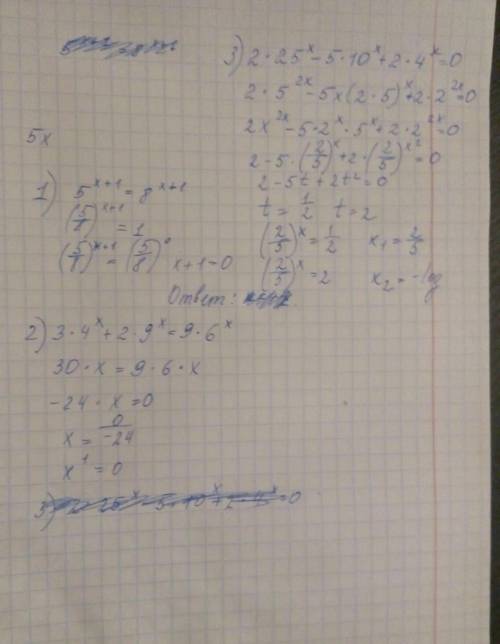 5x
1) 5^(x+1) = 8^(x+1)
(5/8)^(x+1) = 1
(5/8)^(x+1) = (5/8)^0 x+1=0
Ответ:
2) 3·4^x + 2·9^x = 9·6^x
30·x = 9·6·x
-24·x = 0
x = 0/-24
x^1 = 0
3) 2·25^x - 5·10^x + 2·4^x = 0
2·5^(2x) - 5x(2·5)^x + 2·2^(2x) = 0
2x^(2x) - 5·2^x·5^x + 2·2^(2x) = 0
2 - 5·(2/5)^x + 2·(2/5)^(x2) = 0
2 - 5t + 2t^2 = 0
t = 1/2 t = 2
(2/5)^x = 1/2 x₁ = 2/5
(2/5)^x = 2 x₂ = -log